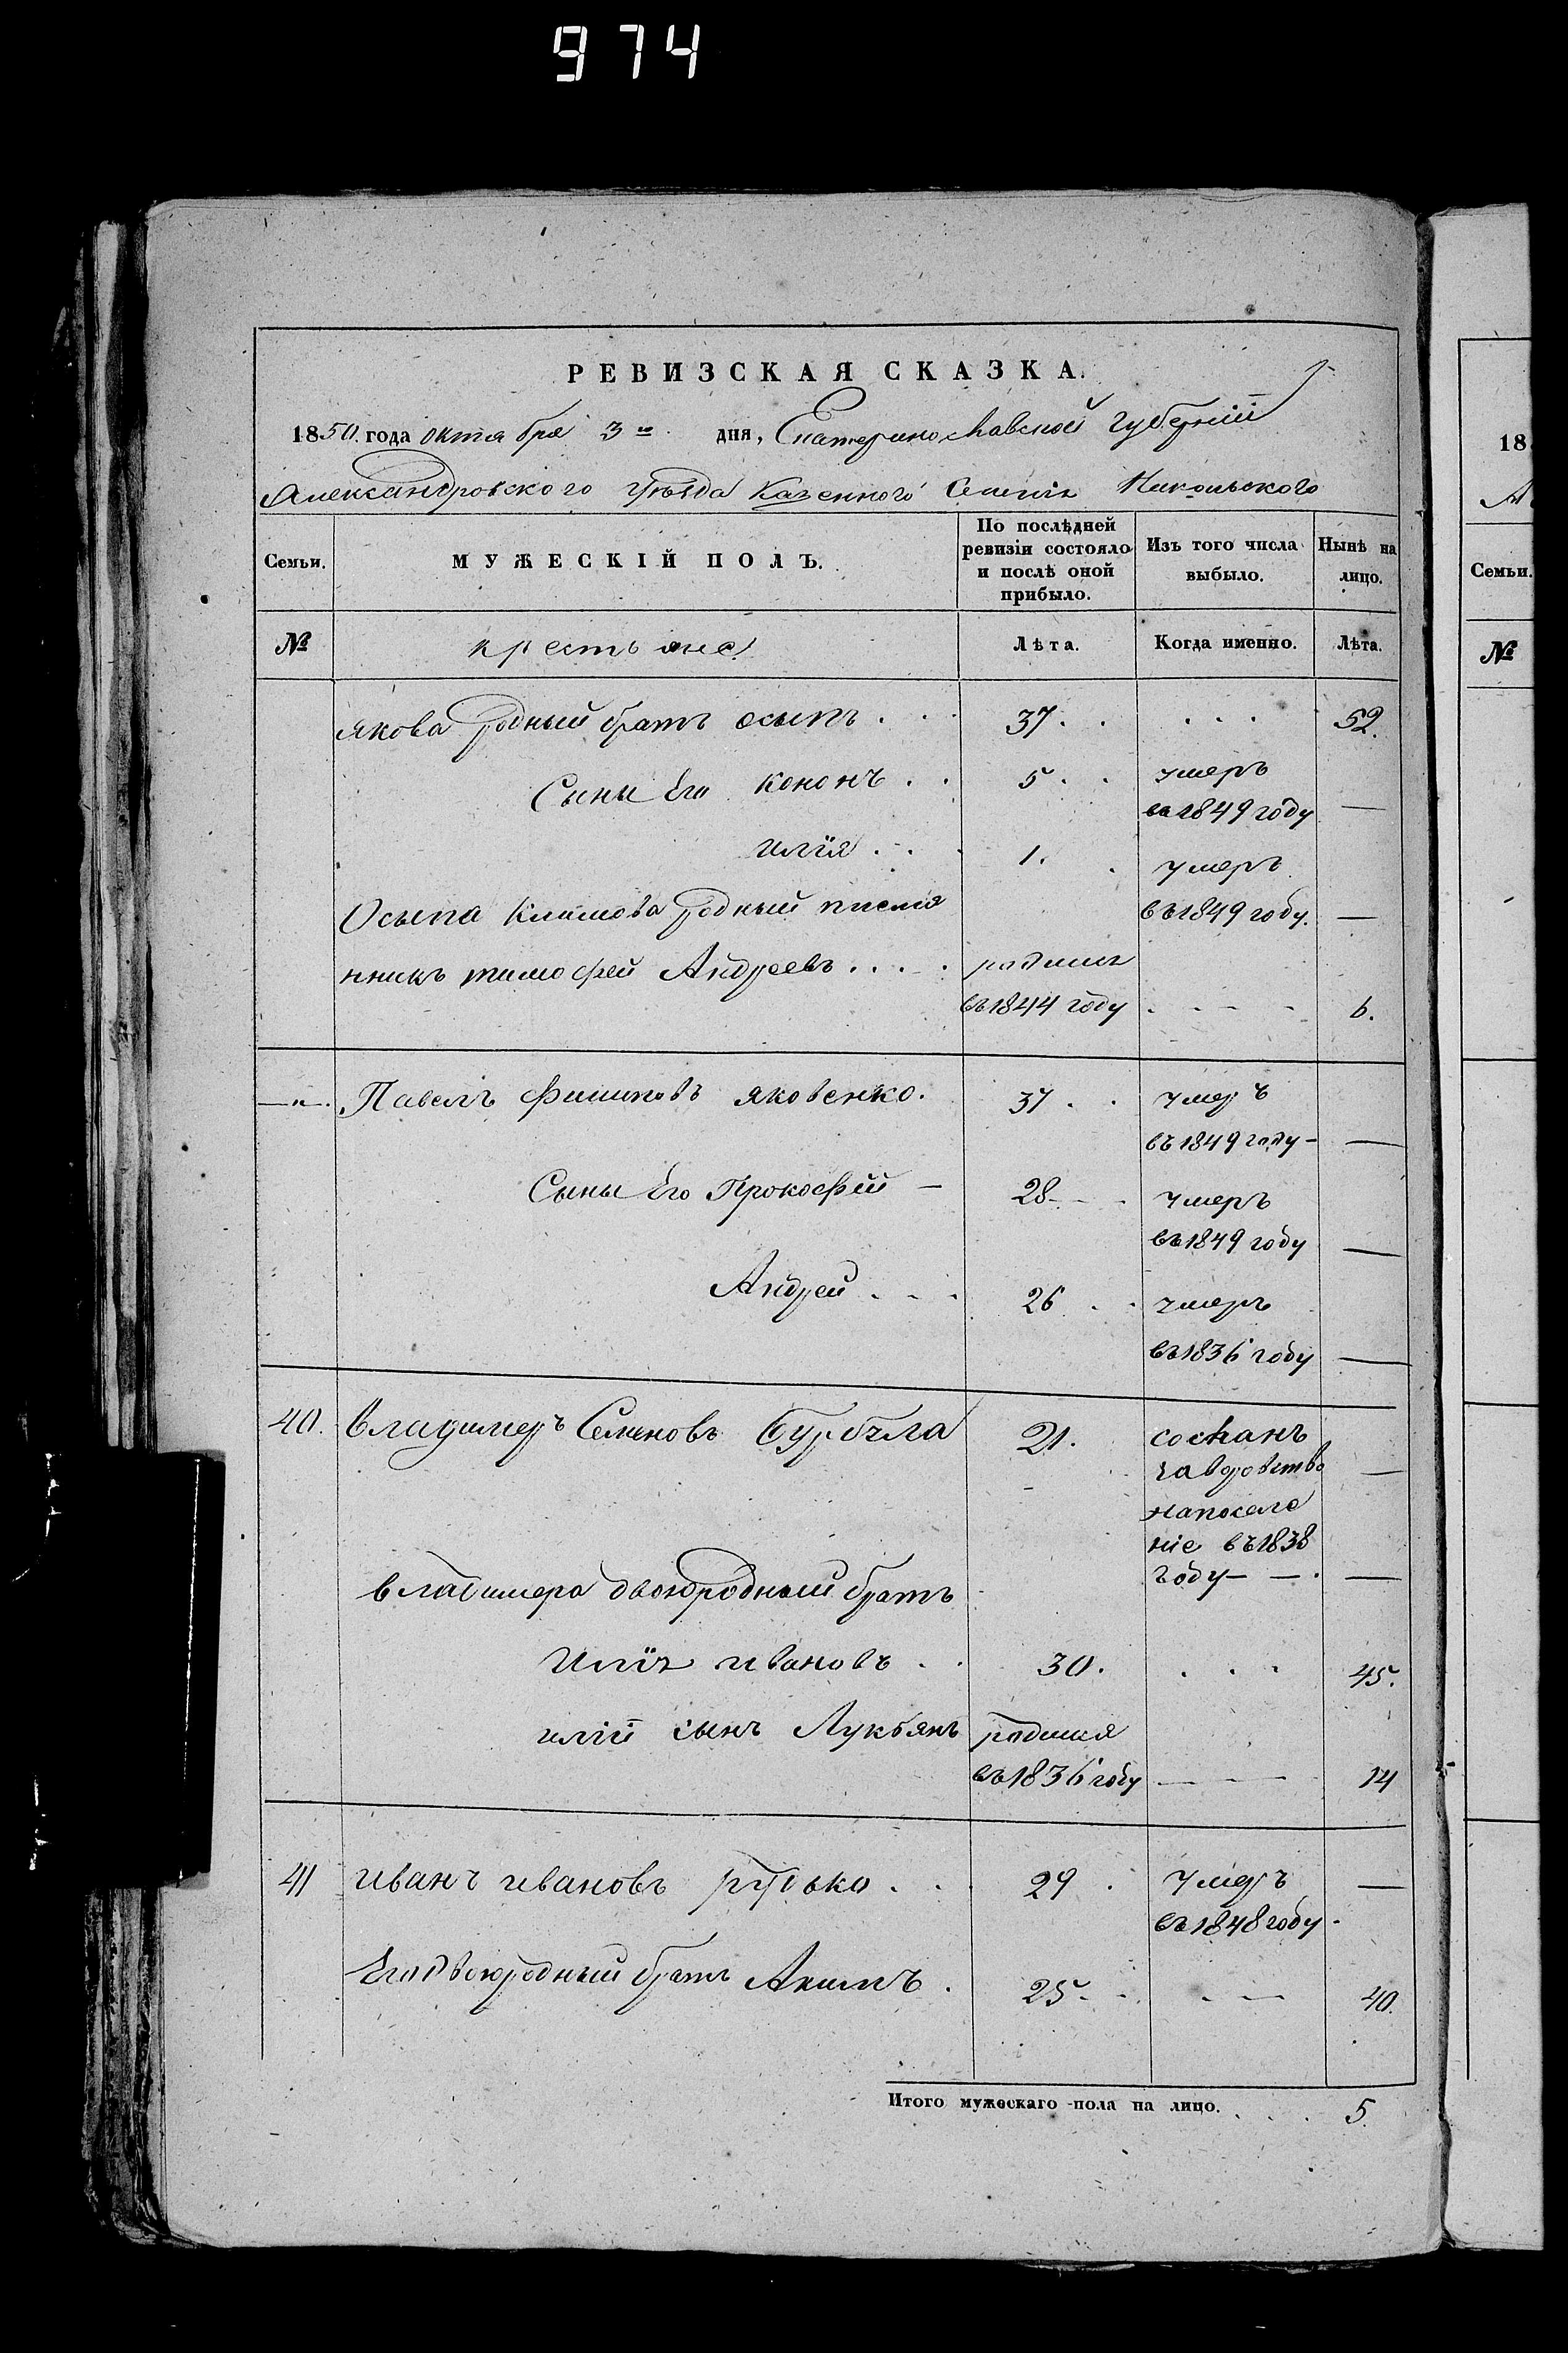 974
РЕВИЗСКАЯ СКАЗКА.
1850 года октября 3го дня, Екатеринославской губерніи
Александровского уѣзда Казенного Селенія Никольского
Семьи.
МУЖЕСКІЙ ПОЛЪ.
По послѣдней ревизіи состояло и послѣ оной прибыло.
Изъ того числа выбыло.
Нынѣ на лицо.
№ крестьяне Лѣта. Когда именно. Лѣта.
Якова родный братъ осыпъ . . . 37 . . . . . 52.
Сыны Его кононъ . . 5 . . умеръ
въ 1849 году —
илїя . . . 1. . умеръ
Осыпа Климова родный племя въ 1849 году. —
нникъ тимофей Андреевъ . . . . родился
въ 1844 году . - - - 6.
—"—. Павелъ Филиповъ яковенко. 37 . . умеръ
въ 1849 году - —
Сыны Его Прокофій — 28 - - . умеръ
въ 1849 году —
Андрей . - . 26 . . умеръ
въ 1836 году —
40. Владимеръ Семеновъ 21. сосланъ
за воровство —
на поселе
ніе въ 1838
году — —. —
владимера двоюродный братъ
Илїя ивановъ . . 30. . . . 45.
иліи сынъ Лукьянъ родился
въ 1836 году — — — 14
41 иванъ ивановъ рудько . . . 29 . умеръ —
въ 1848 году.
Его двоюродный братъ Акимъ . 25 - - . - — 40.
Итого мужескаго пола на лицо. . . . 5.
18
Семьи.
№